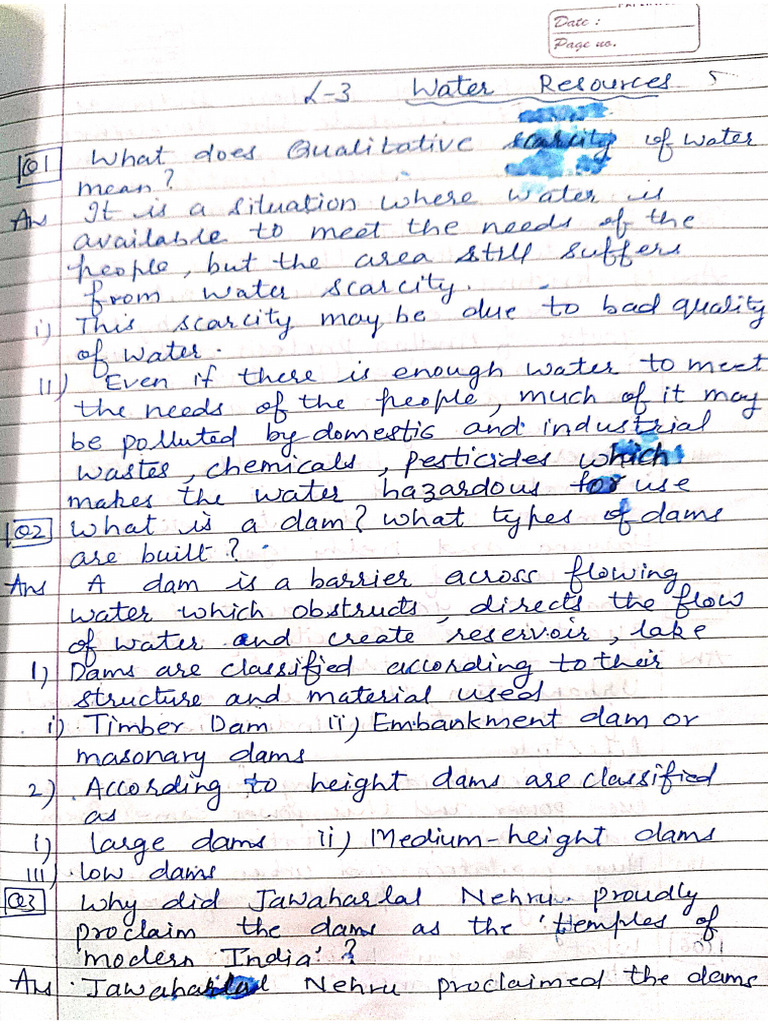 Date :
Page no.
L-3 Water Resources
Q1 What does Qualitative scarcity of water
mean?
Ans It is a situation where water is
available to meet the needs of the
people, but the area still suffers
from water scarcity.
i) This scarcity may be due to bad quality
of water.
ii) Even if there is enough water to meet
the needs of the people, much of it may
be polluted by domestic and industrial
wastes, chemicals, pesticides which
makes the water hazardous for use
Q2 What is a dam? What types of dams
are built?
Ans A dam is a barrier across flowing
water which obstructs, directs the flow
of water and create reservoir, lake
1) Dams are classified according to their
structure and material used
i) Timber Dam ii) Embankment dam or
masonary dams
2) According to height dams are classified
as
i) large dams ii) Medium-height dams
iii) low dams
Q3 Why did Jawaharlal Nehru proudly
proclaim the dams as the 'temples of
modern India'?
Ans Jawaharlal Nehru proclaimed the dams